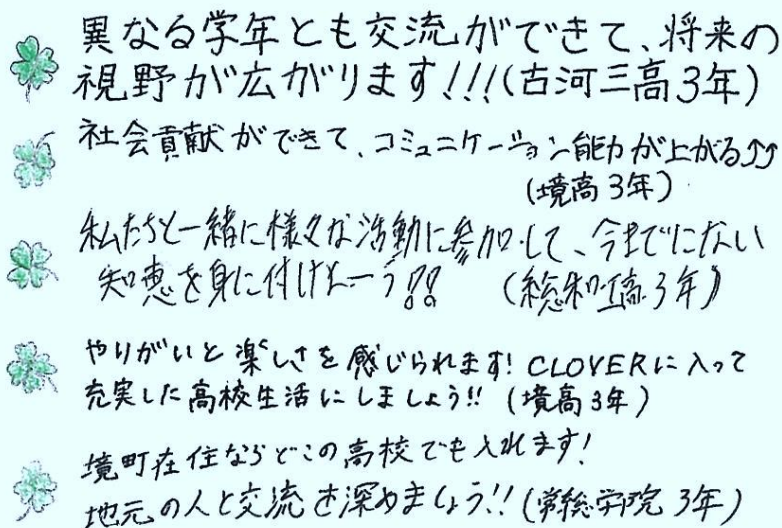 異なる学年とも交流ができて、将来の
視野が広がります!!!(古河三高3年)
社会貢献ができて、コミュニケーション能力が上がる⤴⤴
(境高3年)
私たちと一緒に様々な活動に参加して、今までにない
知恵を身に付けよーう!! (総和工高3年)
やりがいと楽しさを感じられます! CLOVERに入って
充実した高校生活にしましょう!! (境高3年)
境町在住ならどこの高校でも入れます!
地元の人と交流を深めましょう!! (常総学院 3年)